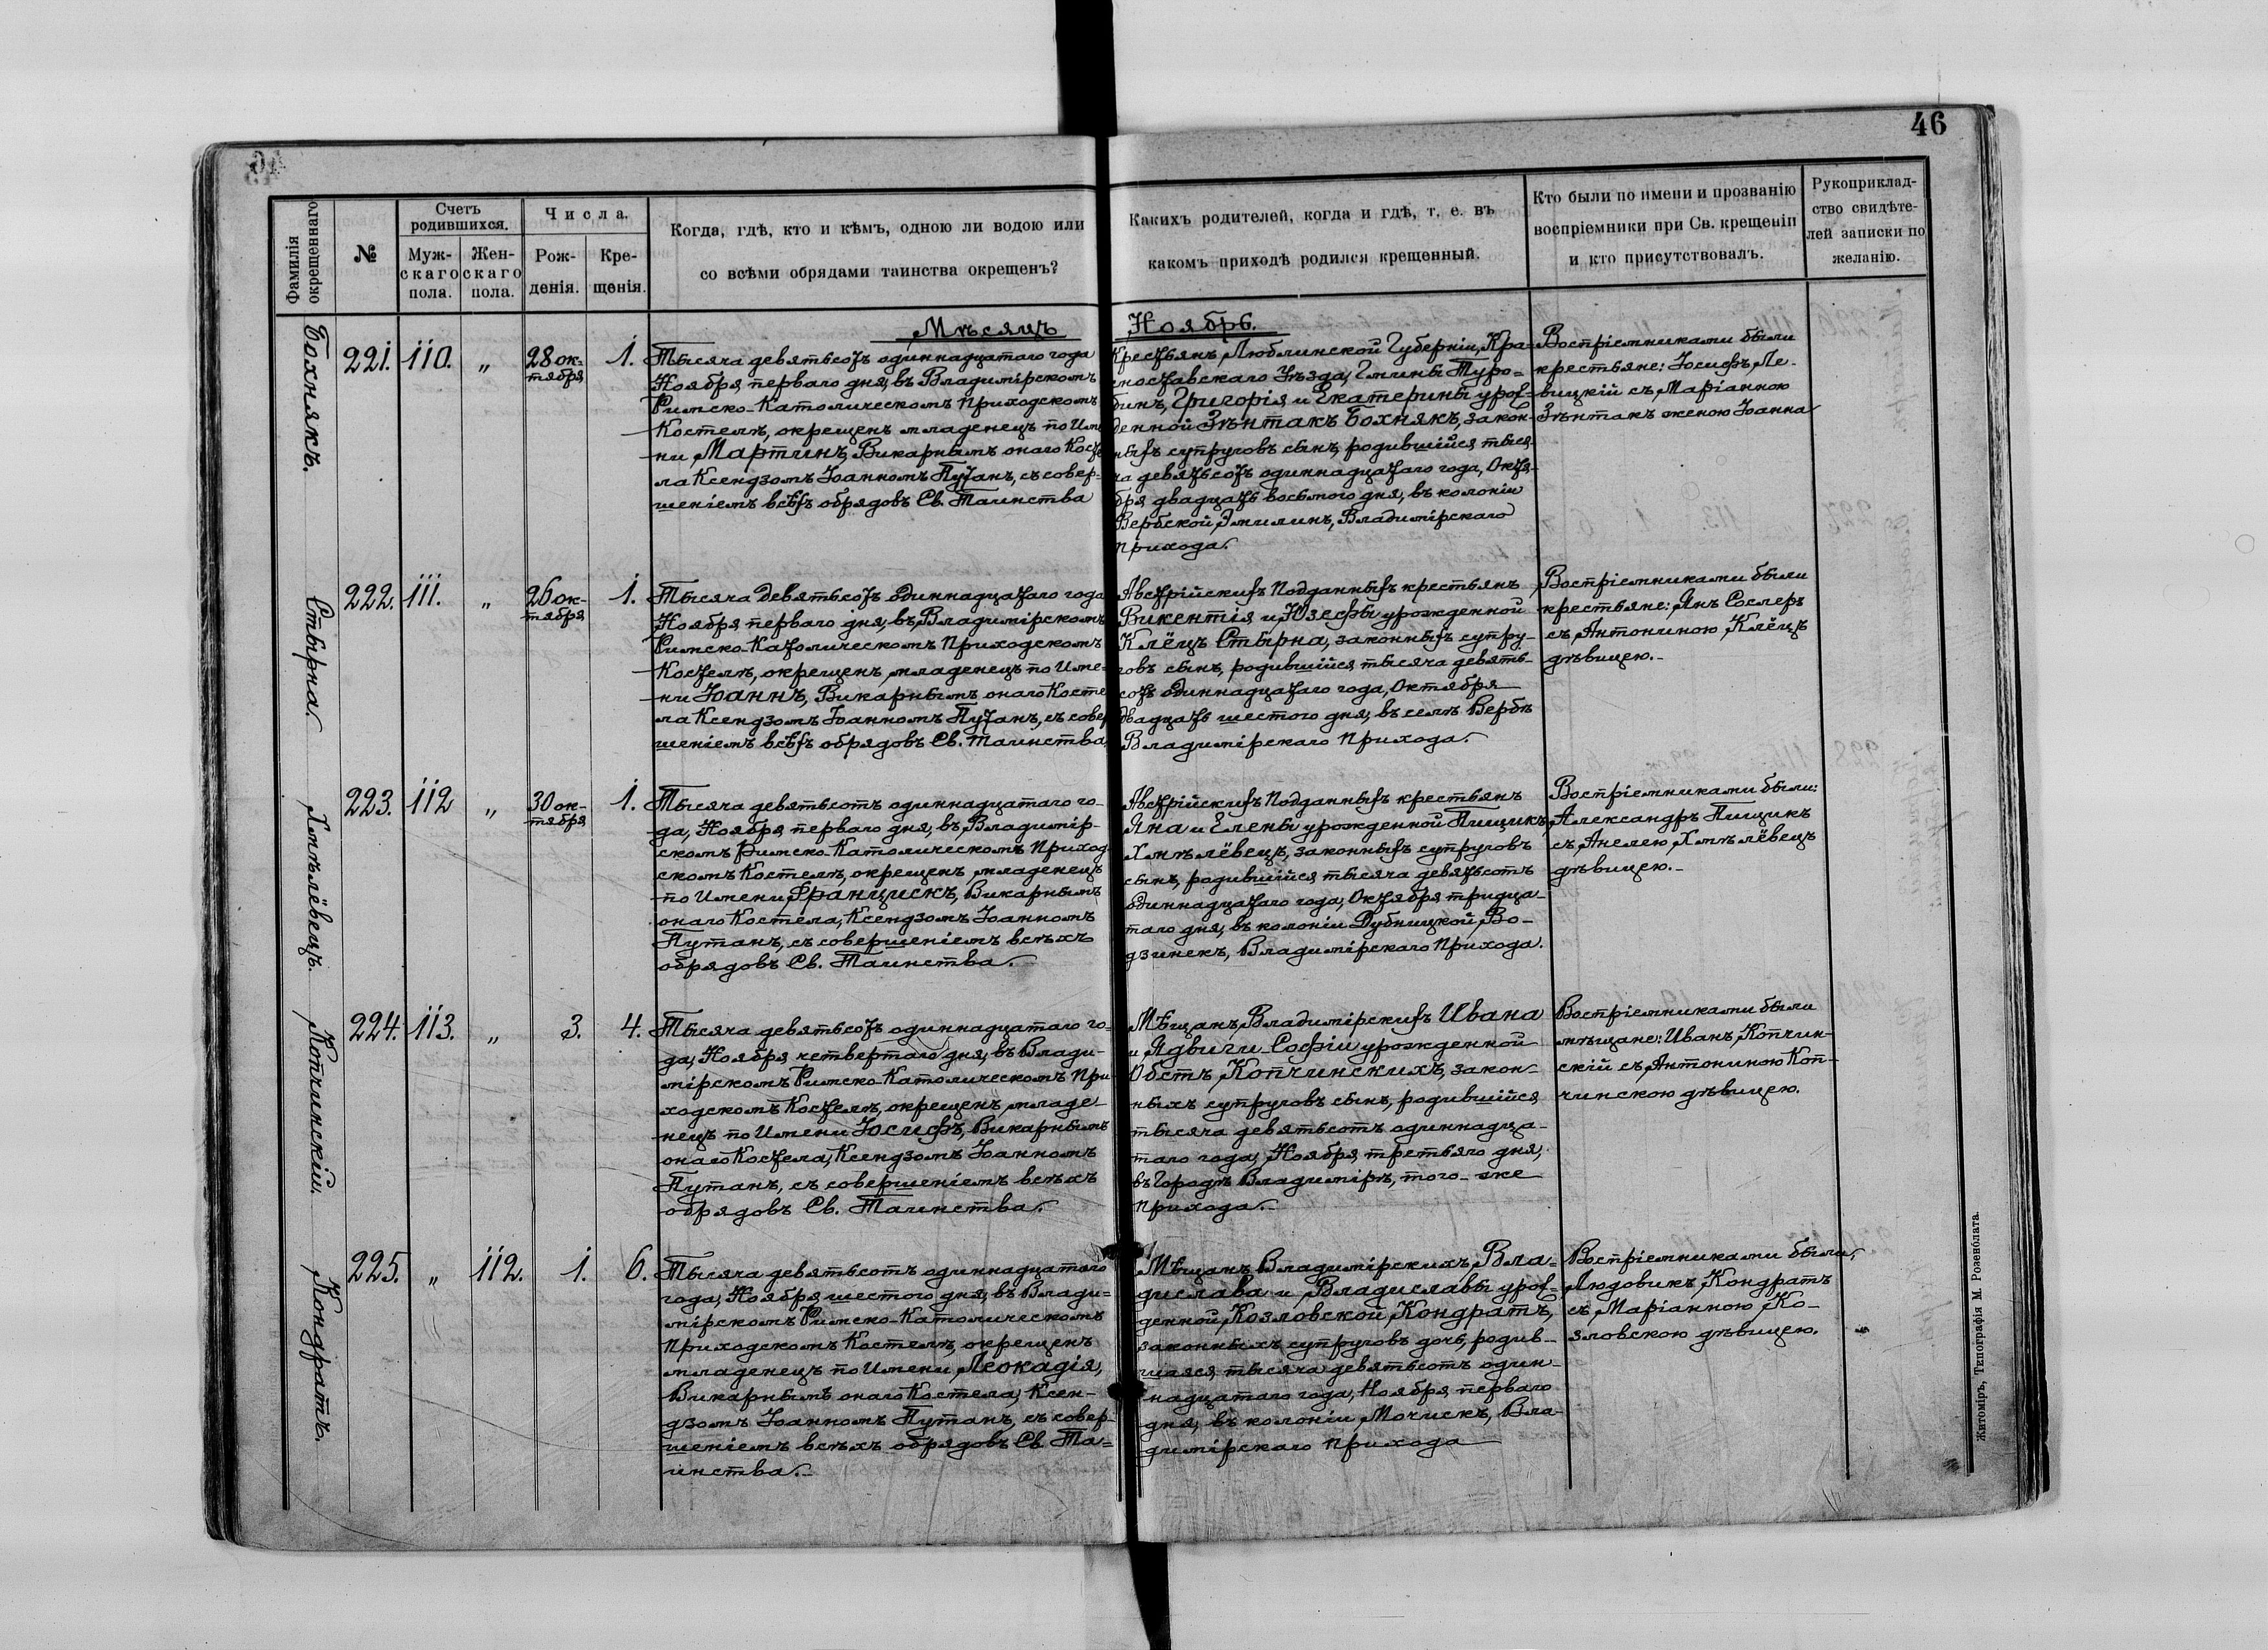 46
Фамилія окрещеннаго
№
Счетъ родившихся.
Муж-
скаго
пола.
Жен-
скаго
пола.
Числа.
Рож-
денія.
Кре-
щенія.
Когда, гдѣ, кто и кѣмъ, одною ли водою или
со всѣми обрядами таинства окрещенъ?
Какихъ родителей, когда и гдѣ, т. е. въ
какомъ приходѣ родился крещенный.
Кто были по имени и прозванію
воспріемники при Св. крещеніи
и кто присутствовалъ.
Рукоприклад-
ство свидѣте-
лей записки по
желанію.
Мѣсяцъ Ноябрь.
Бохнякъ.
221. 110. „ 28 ок-
тября 1.
Тысяча девятьсотъ одиннадцатаго года
Ноября перваго дня, въ Владимірскомъ
Римско-Католическомъ Приходскомъ
Костелѣ, окрещенъ младенецъ по Име
ни Мартинъ, Викарнымъ онаго Косте
ла Ксендзомъ Іоанномъ Путанъ, съ совер-
шеніемъ всѣхъ обрядовъ Св. Таинства
Крестьянъ Люблинской Губерніи, Кра-
сноставскаго Уѣзда, Гмины Туро-
бинъ, Григорія и Екатерины урож-
денной Зѣнтакъ Бохнякъ, закон-
ныхъ супруговъ сынъ, родившійся тыся-
ча девятьсотъ одиннадцатаго года, Октя-
бря двадцать восьмого дня, въ колоніи
Вербской, Эмилинъ, Владимірскаго
прихода.
Воспріемниками были
крестьяне: Іосифъ Ле-
вицкій съ Маріанною
Зѣнтакъ женою Іоанна
Стырна.
222. 111. „ 26 ок-
тября 1.
Тысяча девятьсотъ одиннадцатаго года
Ноября перваго дня, въ Владимірскомъ
Римско-Католическомъ Приходскомъ
Костелѣ, окрещенъ младенецъ по Име-
ни Іоаннъ, Викарнымъ онаго Косте
ла Ксендзомъ Іоанномъ Путанъ, съ совер
шеніемъ всѣхъ обрядовъ Св. Таинства,
Австрійскихъ Подданныхъ крестьянъ
Викентія и Юзефы урожденной
Клёцъ Стырна, законныхъ супру-
говъ сынъ, родившійся тысяча девять-
сотъ одиннадцатаго года, Октября
двадцать шестого дня, въ селѣ Вербѣ
Владимірскаго Прихода.
Воспріемниками были
крестьяне: Янъ Сослеръ
съ Антониною Клёцъ
дѣвицею.-
Хмѣлёвецъ.
223. 112 „ 30 ок-
тября 1.
Тысяча девятьсотъ одиннадцатаго го-
да, Ноября перваго дня, въ Владимір-
скомъ Римско-Католическомъ Приход
скомъ Костелѣ, окрещенъ младенецъ
по Имени Францискъ, Викарнымъ
онаго Костела, Ксендзомъ Іоанномъ
Путанъ, съ совершеніемъ всѣхъ
обрядовъ Св. Таинства.
Австрійскихъ Подданныхъ крестьянъ
Яна и Елены урожденной Пищикъ,
Хмѣлёвецъ, законныхъ супруговъ
сынъ, родившійся тысяча девятьсотъ
одиннадцатаго года, Октября тридца-
таго дня, въ колоніи Дубницкой, Во-
дзинекъ, Владимірскаго Прихода.
Воспріемниками были:
Александръ Пищикъ
съ Анелею Хмѣлёвецъ
дѣвицею.-
Копчинскій.
224. 113. „ 3. 4.
Тысяча девятьсотъ одиннадцатаго го-
да, Ноября четвертаго дня, въ Влади-
мірскомъ Римско-Католическомъ При
ходскомъ Костелѣ, окрещенъ младе-
нецъ по Имени Іосифъ, Викарнымъ
онаго Костела, Ксендзомъ Іоанномъ
Путанъ, съ совершеніемъ всѣхъ
обрядовъ Св. Таинства.
Мѣщанъ Владимірскихъ Ивана
и Ядвиги-Софіи урожденной
Обстъ Копчинскихъ, закон-
ныхъ супруговъ сынъ, родившійся
тысяча девятьсотъ одиннадца-
таго года, Ноября третьяго дня,
въ Городѣ Владимірѣ, того-же
прихода.-
Воспріемниками были
мѣщане: Иванъ Копчин-
скій съ Антониною Коп-
чинскою дѣвицею.
Кондратъ.
225. „ 112. 1. 6.
Тысяча девятьсотъ одиннадцатаго
года, Ноября шестого дня, въ Влади-
мірскомъ Римско-Католическомъ
Приходскомъ Костелѣ, окрещенъ
младенецъ по Имени Леокадія,
Викарнымъ онаго Костела, Ксен-
дзомъ Іоанномъ Путанъ, съ совер-
шеніемъ всѣхъ обрядовъ Св. Та-
инства.-
Мѣщанъ Владимірскихъ, Вла-
дислава и Владиславы урож-
денной Козловской, Кондратъ,
законныхъ супруговъ дочь, родив-
шаяся тысяча девятьсотъ один-
надцатаго года, Ноября перваго
дня, въ колоніи Мочискъ, Вла-
димірскаго прихода
Воспріемниками были,
Людовикъ Кондратъ
съ Маріанною Ко-
зловскою дѣвицею.
Житоміръ, Типографія М. Розенблата.